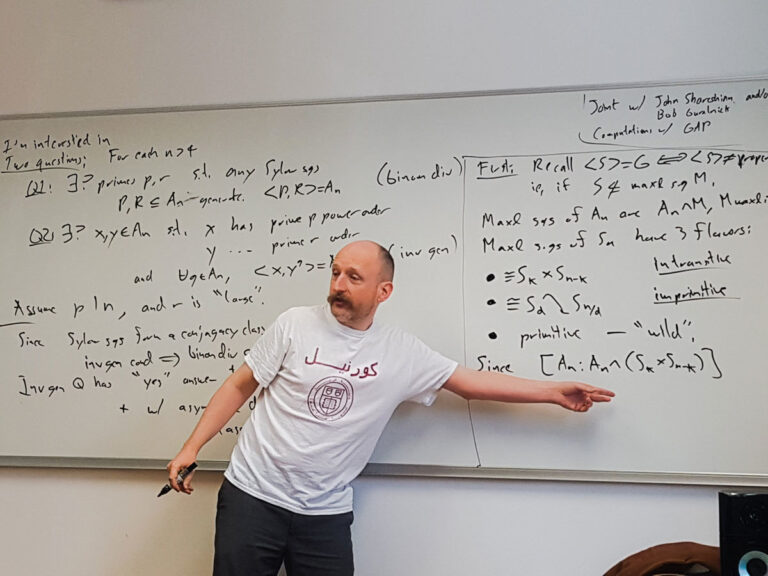 I'm interested in
Two questions: For each n>4
Q1: ∃? primes p,r s.t. any Sylow sgs
P,R ≤ An generate. <P,R>=An
(binom div)
Q2: ∃? x,y∈An s.t. x has prime p power order
y ... prime r order
and ∀g∈An, <x,y^g>=
(inv gen)
Assume p|n, and r is "large".
Since Sylow sgs form a conjugacy class
inv gen cond ⇒ binom div
Inv gen Q has "yes" answer
+ w/
كورنيل
Joint w/ John Shareshian and/o
Bob Guralnick
Computations w/ GAP
First: Recall <S>=G ⟺ <S>≠prope
ie, if S ⊄ maxl sg M,
Maxl sgs of An are An∩M, M maxl
Maxl sgs of Sn have 3 flavors:
• ≅Sk×Sn-k intransitive
• ≅Sd≀Sn/d imprimitive
• primitive – "wild",
Since [An:An∩(Sk×Sn-k)]